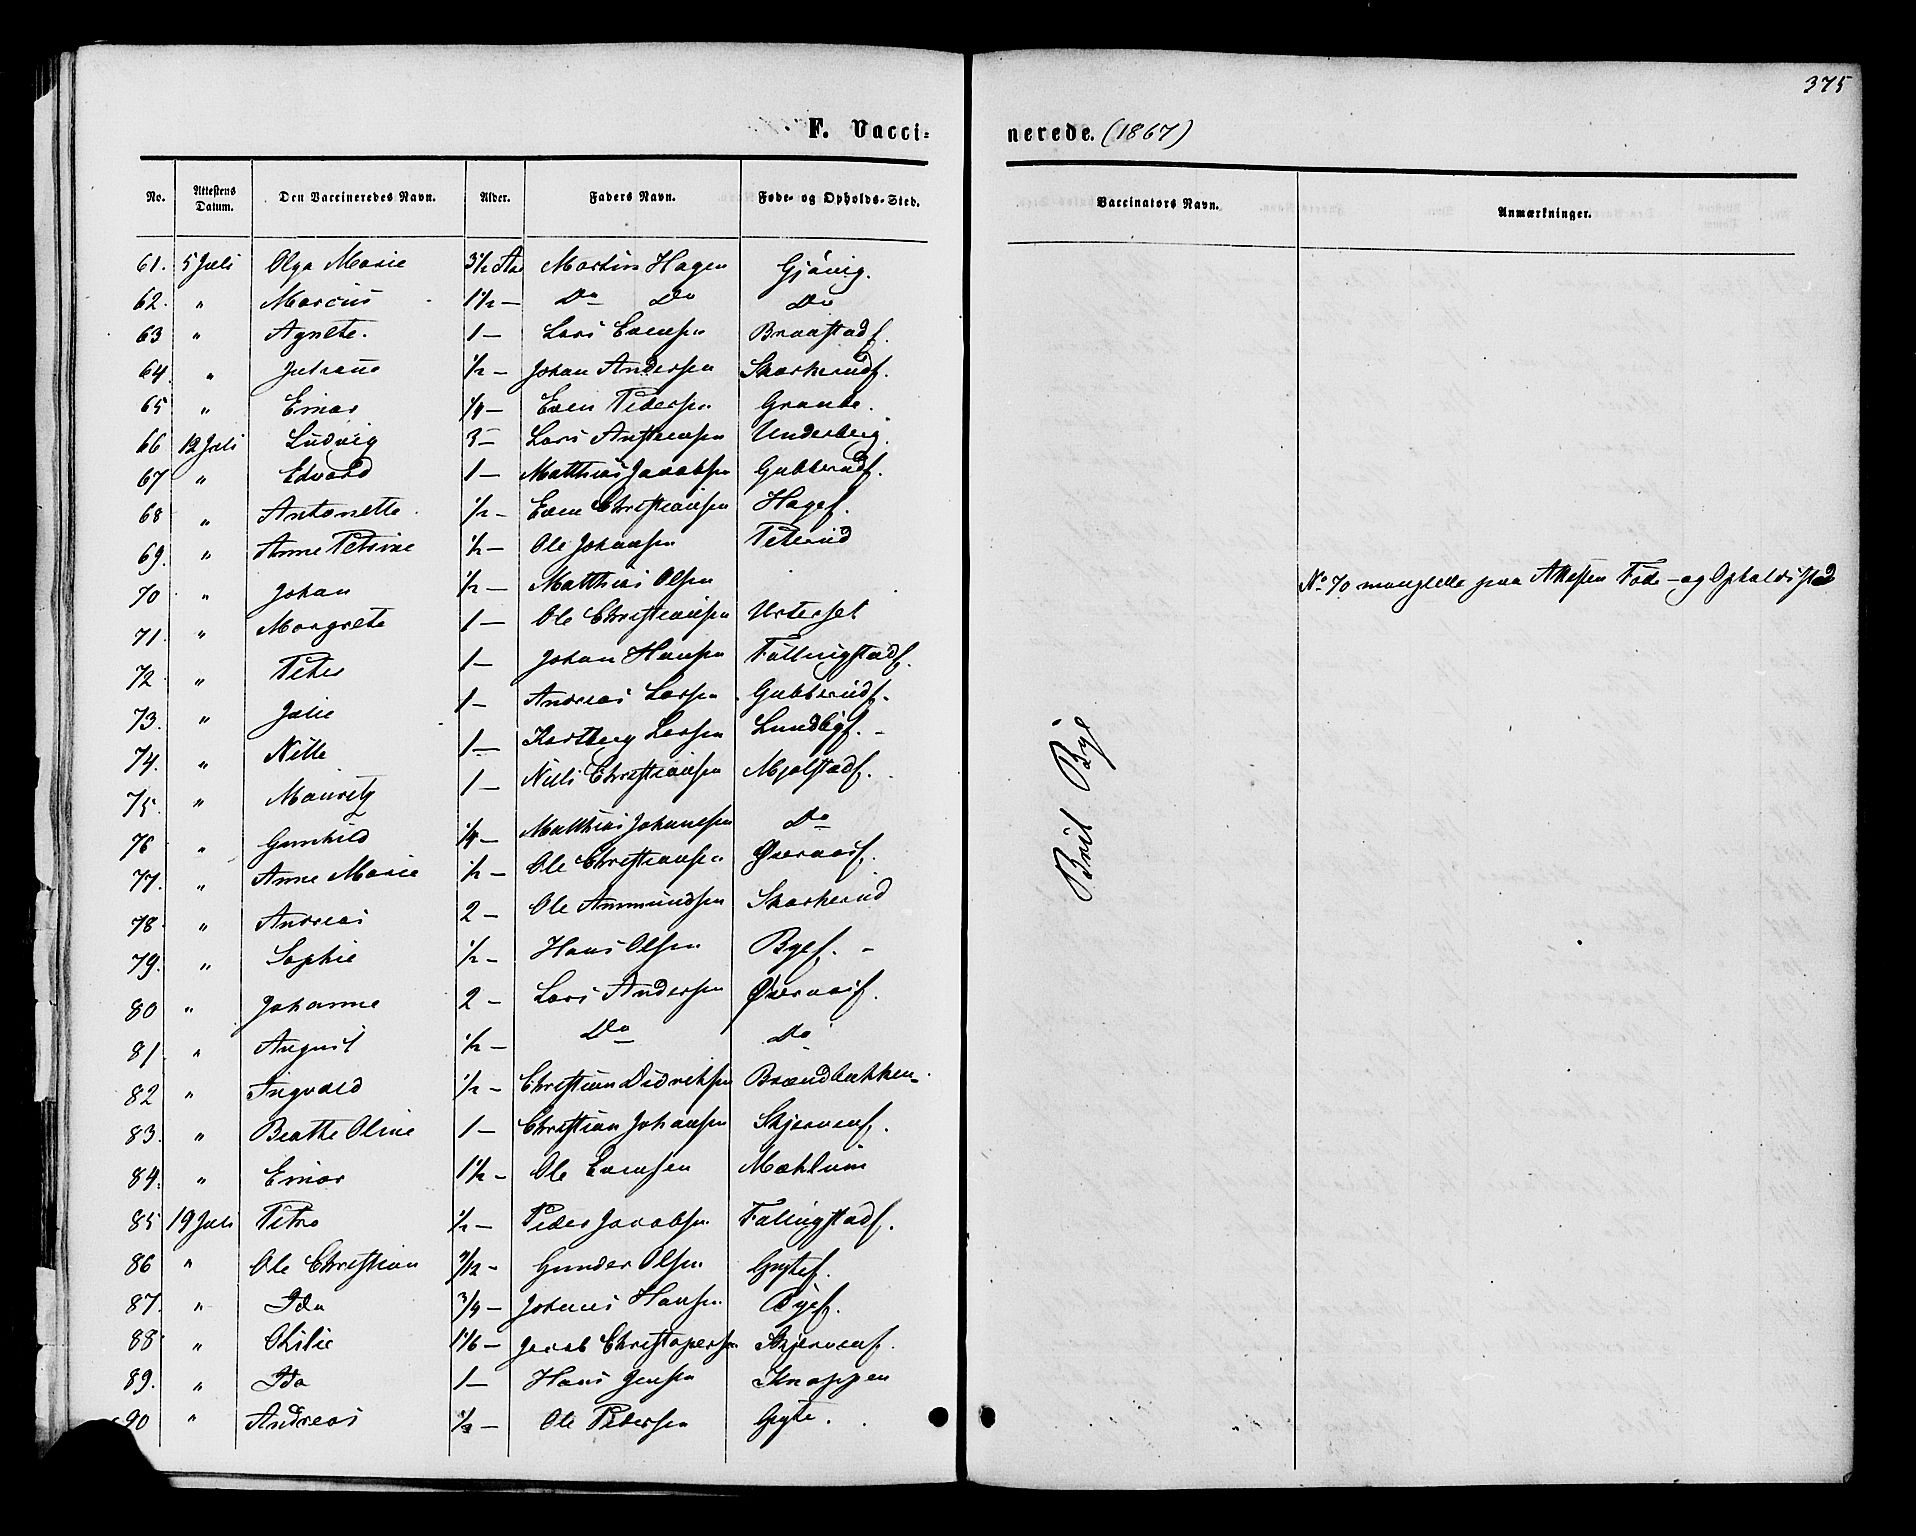 375
F. Vaccinerede. (1867)
No. Attestens Datum. Den Vaccineredes Navn. Alder. Faders Navn. Føde- og Opholds-Sted. Vaccinators Navn. Anmærkninger.
61. 5 Juli Olga Marie 3½ Aar Martin Hagen Gjøvig.
62. " Marcus 1½ — Do Do Do
63 " Agnete. 1 — Lars Evensen Braastadf.
64. " Juliane ½ — Johan Andersen Skarkerudf.
65 " Einar ¼ — Even Pedersen Grande.
66 12 Juli Ludvig 3 — Lars Anstensen Underberg.
67 " Edvard 1 — Matthias Jacobsen Gubberudf.
68 " Antonette. ½ — Even Christiansen Hagef.
69. " Anne Petrine ½ — Ole Johansen Peterud
70 " Johan ½ — Matthias Olsen No 70 manglede paa Attesten Føde- og Opholdssted
71. " Margrete 1 — Ole Christiansen Urterset
72 " Peter 1 — Johan Hansen Fallingstadf.
73. " Julie 1 — Andreas Larsen Gubberudf.
74. " Nille 1 — Larsen Lundbyf. —
75. " Mauritz 1 — Niels Christiansen Mjølstadf.
76 " Gunhild ¼ — Matthias Johansen Do
77. " Anne Marie ½ — Ole Christiansen Øveraasf.
78. " Andreas 2 — Ole Ammundsen Skarkerud
79. " Sophie ½ — Hans Olsen Byef. —
80 " Johanne 2 — Lars Andersen Øveraasf.
81. " August ½ — Do Do
82 " Ingvald ½ — Christian Didriksen Brændbakken.
83. " Beathe Oline 1 — Christian Johansen Skjervenf.
84. " Einar 1½ — Ole Evensen Mæhlum
85 19 Juli Petra ½ — Peder Jacobsen Falingstadf.
86 " Ole Christian /12 — Gunder Olsen Grytef.
87. " Ida ¾ — Johannes Hansen Byef.
88 " Othilie 1⅙ — Jacob Christophersen Skjervenf.
89. " Ida 1 — Hans Jensen Knappen
90 " Andreas — Ole Pedersen Gryte.
Brit Bye